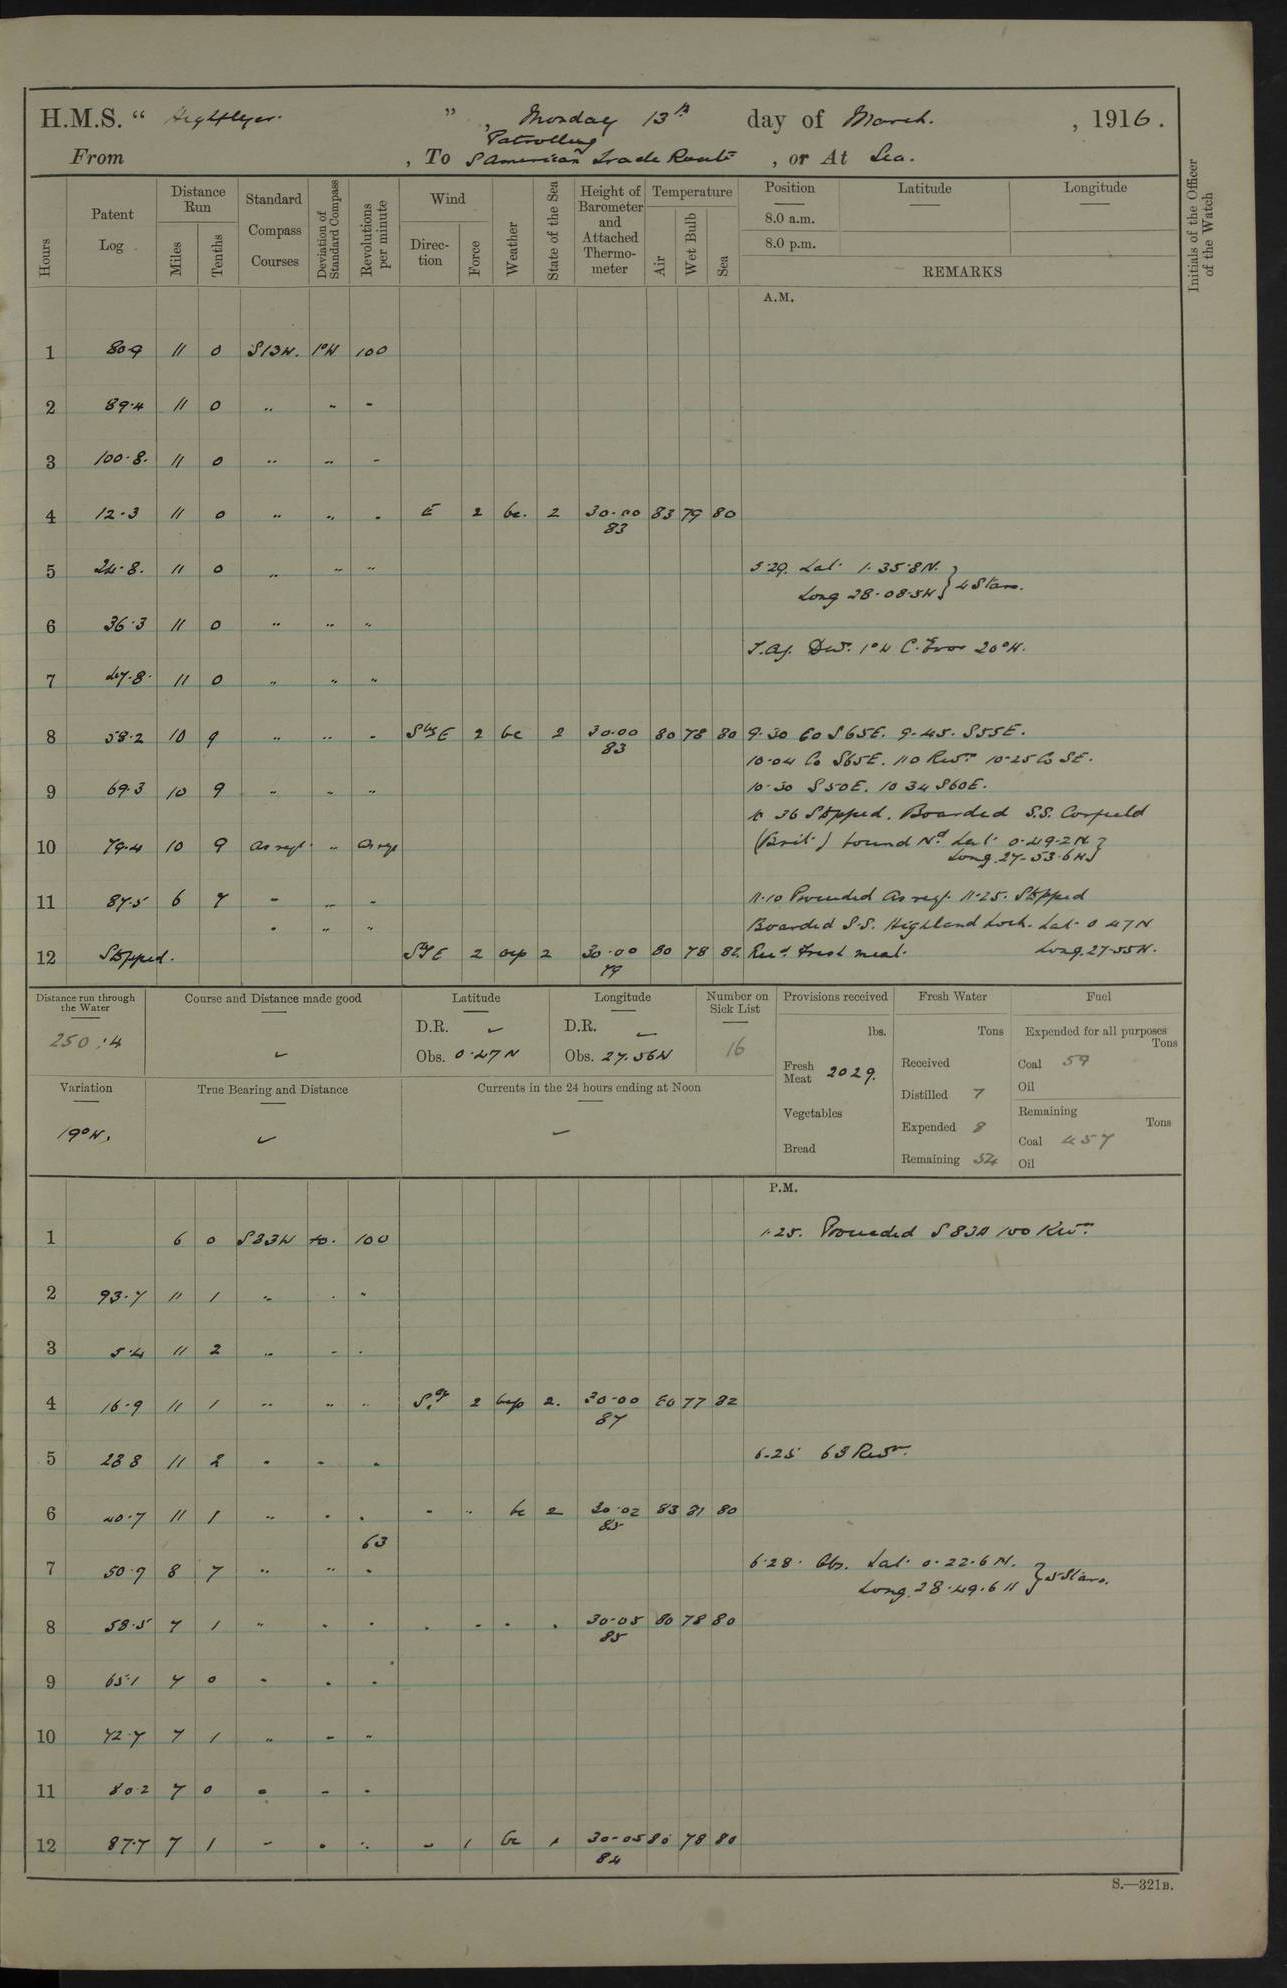 H.M.S. " Highflyer. " , Monday 13th day of March. , 1916.
Patrolling
From , To S American Trade Route , or At Sea.
Hours
Patent Log
Distance Run
Miles
Tenths
Standard Compass Courses
Deviation of Standard Compass
Revolutions per minute
Wind
Direction
Force
Weather
State of the Sea
Height of Barometer and Attached Thermometer
Temperature
Air
Wet Bulb
Sea
Position
Latitude
Longitude
8.0 a.m.
8.0 p.m.
REMARKS
Initials of the Officer of the Watch
A.M.
1 80.9 11 0 S13W. 1°W 100
2 89.4 11 0 " " "
3 100.8. 11 0 " " "
4 12.3 11 0 " " " E 2 bc. 2 30.00 83 79 80
83
5 24.8. 11 0 " " " 5.29. Lat. 1.35.8N.
Long 28.08.5W } 4 Stars.
6 36.3 11 0 " " "
T.Az. Dev. 1°W C. Error 20°W.
7 47.8. 11 0 " " "
8 58.2 10 9 " " " SbyE 2 bc 2 30.00 80 78 80 9.30 Co S65E. 9.45. S55E.
83
10.04 Co S65E. 110 Revs. 10.25 Co SE.
9 69.3 10 9 " " " 10.30 S50E. 10 34 S60E.
10 36 Stopped. Boarded S.S. Corfield
10 79.4 10 9 As reqt. " As req (Brit.) bound Nd Lat. 0.49.2N }
Long. 27.53.6W
11 87.5 6 7 " " " 11.10 Proceeded as req. 11.25. Stopped
" " " Boarded S.S. Highland Loch. Lat. 0 47N
12 Stopped. SbyE 2 ocp 2 30.00 80 78 82. Recd. Fresh meat. Long. 27.55W.
79
Distance run through the Water
250.4
Course and Distance made good
Latitude
D.R.
Obs. 0.47N
Longitude
D.R.
Obs. 27.56W
Number on Sick List
16
Provisions received
lbs.
Fresh Meat 2029.
Vegetables
Bread
Fresh Water
Tons
Received
Distilled 7
Expended 8
Remaining 54
Fuel
Expended for all purposes
Tons
Coal 59
Oil
Remaining
Tons
Coal 457
Oil
Variation
19°W.
True Bearing and Distance
Currents in the 24 hours ending at Noon
P.M.
1 6 0 S83W 100 1.25. Proceeded S83W 100 Revs.
2 93.7 11 1 " " "
3 5.4 11 2 " " "
4 16.9 11 1 " " " 2 bcp 2. 30.00 80 77 82
87
5 28 8 11 2 " " " 6.25 63 Revs.
6 40.7 11 1 " " " " " bc 2 30.02 83 81 80
85
63
7 50.9 8 7 " " " 6.28. Obs. Lat. 0.22.6N.
Long. 28.49.6 W } 5 Stars.
8 58.5 7 1 " " " " " " " 30.05 80 78 80
85
9 65.1 7 0 " " "
10 72.7 7 1 " " "
11 80.2 7 0 " " "
12 87.7 7 1 " " " " 1 bc 1 30.05 80 78 80
84
S.—321B.